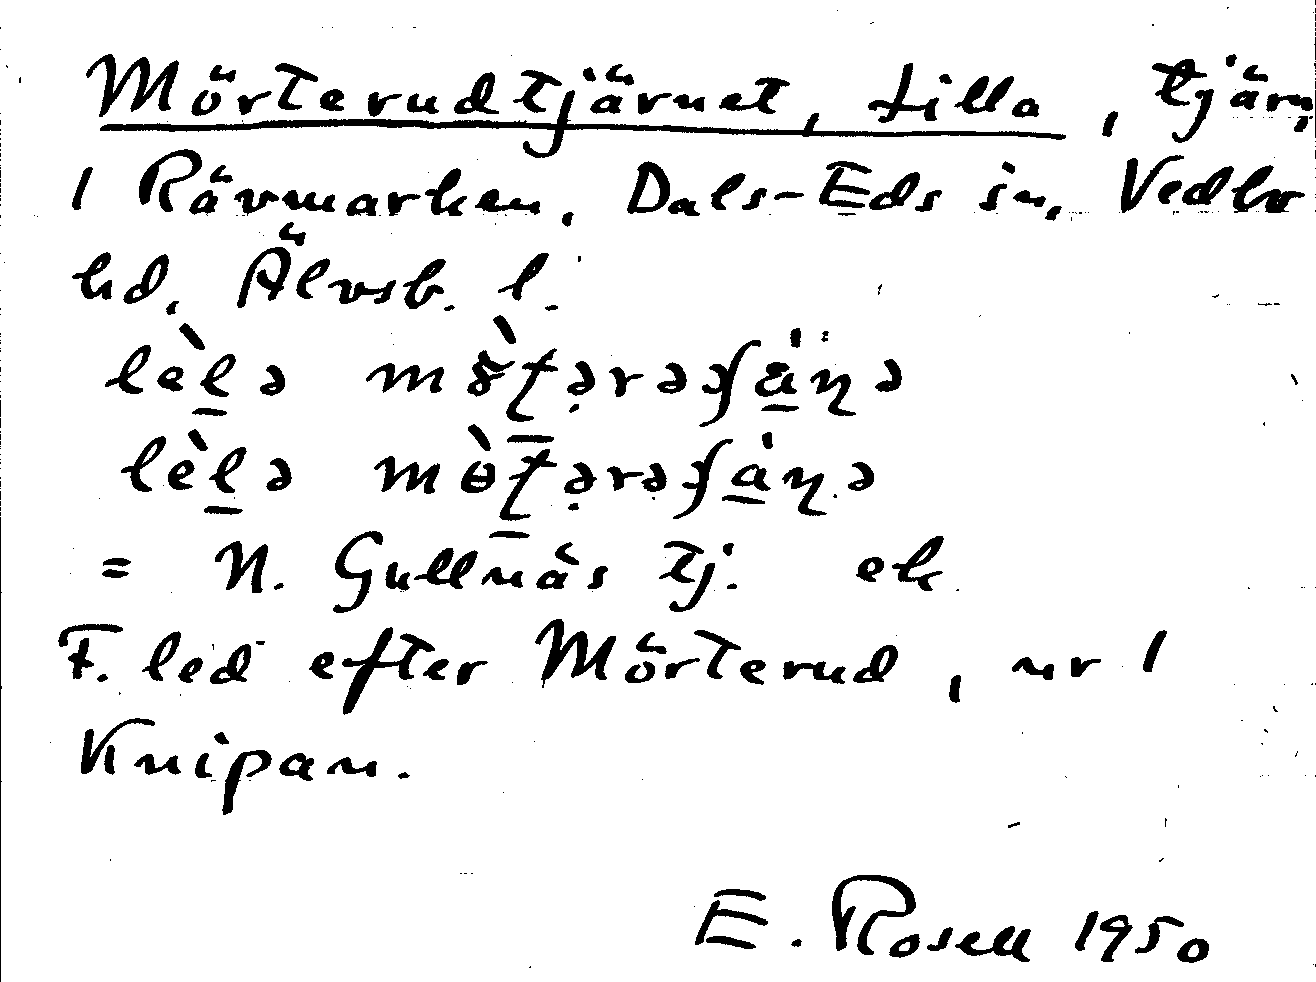 Mörterudtjärnet, lilla, tjärn,
1 Rävmarken, Dals-Eds sn, Vedbo
hd. Älvsb. l.
lèlə
lèlə
= N. Gullnäs tj. ek
F. led efter Mörterud, nr 1
Knipan.
E. Rosell 1950